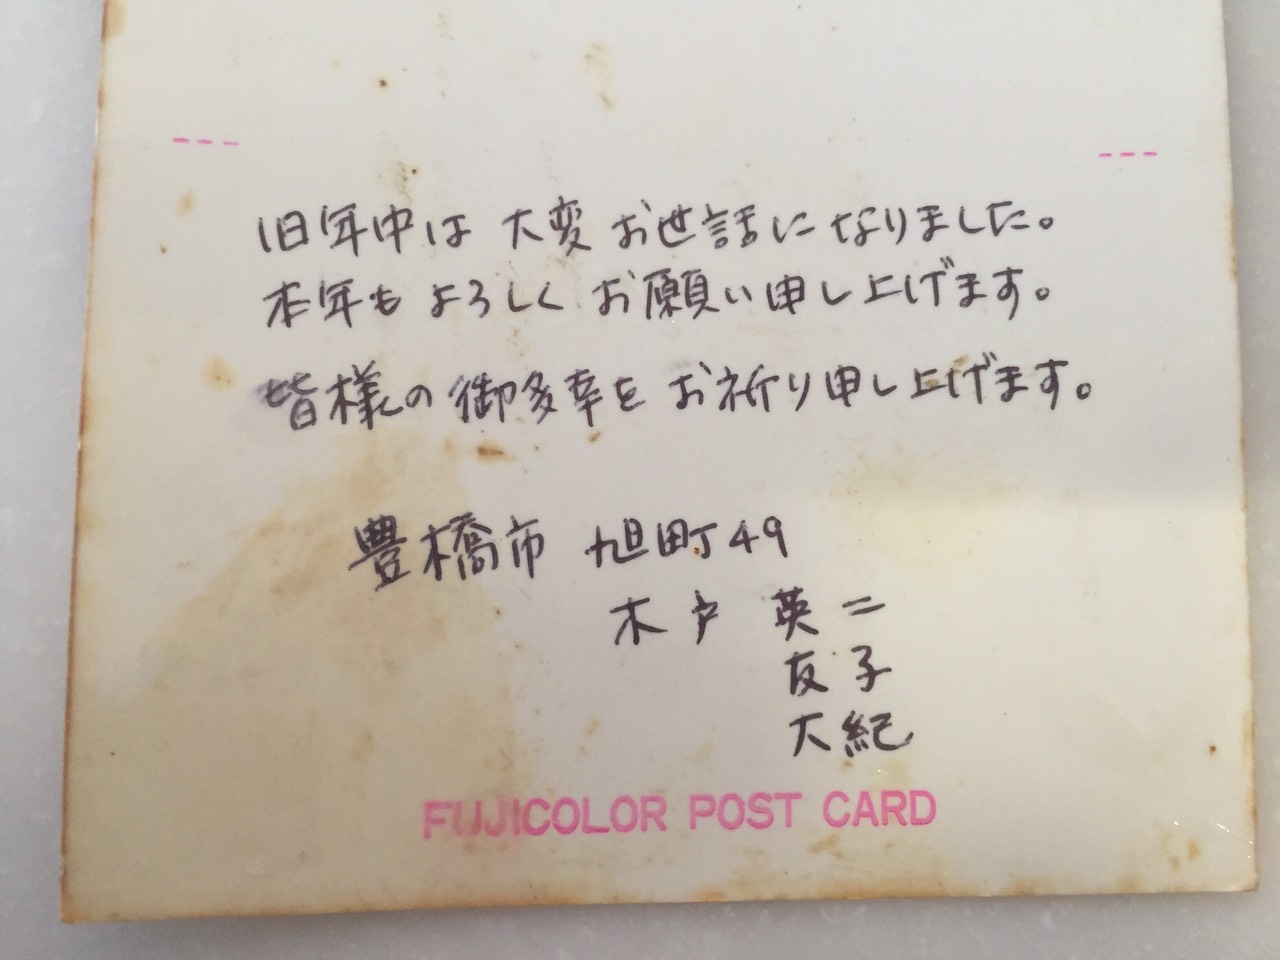 旧年中は 大変 お世話に なりました。
本年も よろしく お願い申し上げます。
皆様の 御多幸を お祈り申し上げます。
豊橋市 旭町49
木戸 英二
友子
大紀
FUJICOLOR POST CARD